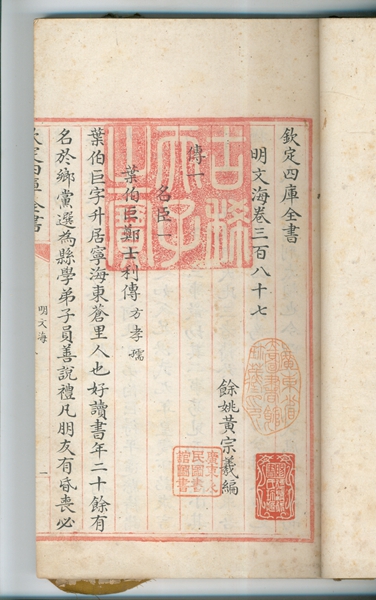 欽定四庫全書
明文海卷三百八十七
餘姚黃宗羲編
傳一
名臣一
葉伯巨鄭士利傳 方孝孺
葉伯巨字升居寧海東蒼里人也好讀書年二十餘有
名於鄉黨選為縣學弟子員善說禮凡朋友有昏喪必
明文海
一
古稀天子之寶